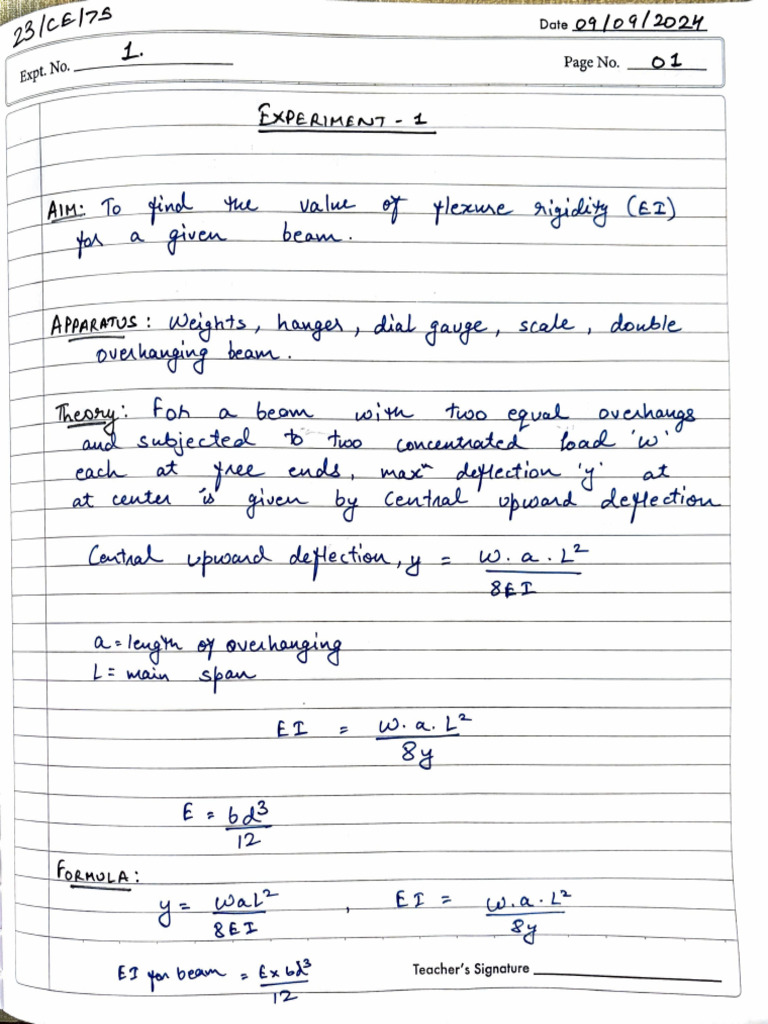 23/CE/75
Date 09/09/2024
Expt. No. 1.
Page No. 01
EXPERIMENT - 1
AIM: To find the value of flexure rigidity (EI)
for a given beam.
APPARATUS: Weights, hanger, dial gauge, scale, double
overhanging beam.
Theory: For a beam with two equal overhangs
and subjected to two concentrated load 'w'
each at free ends, maxᵐ deflection 'y' at
at center is given by central upward deflection
Central upward deflection, y = w.a.L²/8EI
a = length of overhanging
L = main span
EI = w.a.L²/8y
E = bd³/12
FORMULA:
y = waL²/8EI , EI = w.a.L²/8y
EI for beam = E x bd³/12
Teacher's Signature